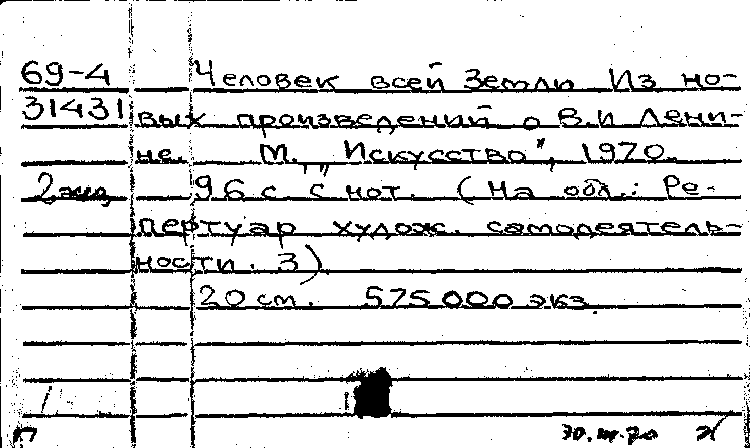 69-4 Человек всей Земли Из но-
31431 вых произведений о В.И Лени-
не. М., "Искусство", 1970.
2 экз 96 с с нот. (На обл.: Ре-
пертуар худож. самодеятель-
ности. 3)
20 см. 575000 экз.
П